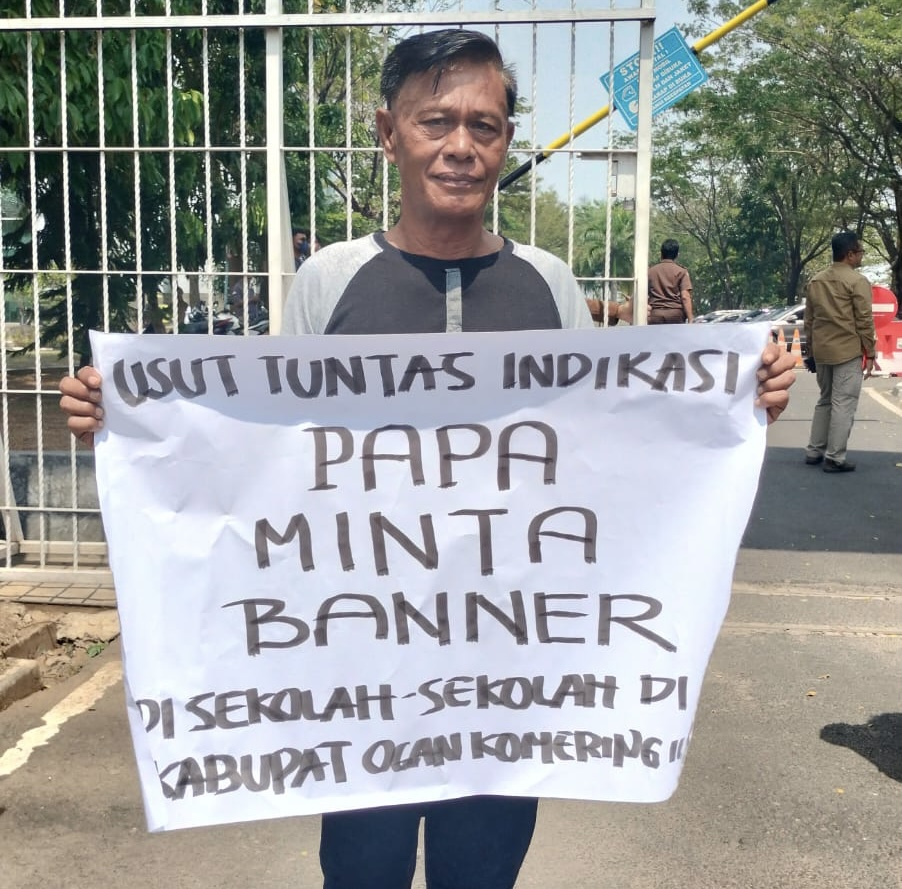 USUT TUNTAS INDIKASI
PAPA
MINTA
BANNER
DI SEKOLAH-SEKOLAH DI
KABUPAT OGAN KOMERING
STOP!!